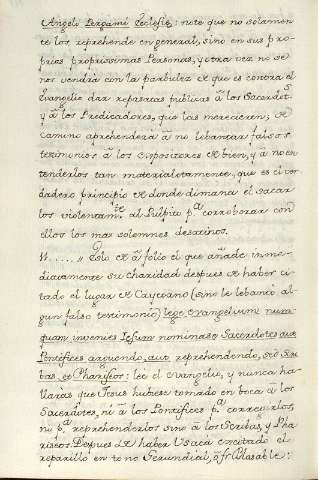 Angelo Pergami Ecclesiæ: note que no solamen
te los reprehende en general, sino en sus pro
prias proprissimas Personas, y otra vez no se
nos vendrá con la parbulez de que es contra el
Evangelio dar repasatas públicas â los Sacerdots
y â los Predicadores, que las merecieren, de
camino aprehenderá â no lebantar falsos
testimonios â los Expositores de bien, y â no en
tenderlos tan materialotamente, que es el ver
dadero principio de donde dimana el sacar
los violentamte. al Púlpito pa. corroborar con
ellos los mas solemnes desatinos.
N..... Esto de â folio el que añade inme-
diatamente su charidad despues de haber ci
tado el lugar de Cayetano (sino le lebantó al-
gun falso testimonio) lege evangelium nun-
quam invenies Iesum nominasse Sacerdotes aut
Pontifices arguendo, aut reprehendendo, sed Scri
bas, et Phariseos: lee el evangelio, y nunca ha
llaras que Jesus hubiese tomado en boca â los
Sacerdotes, ni â los Pontifices pa. corregirlos,
ni pa. reprehenderlos sino â los Scribas, y Pha
riseos. Despues de haber Usaca encitado el
reparillo en tono Gerundial, â fr. Phasable: